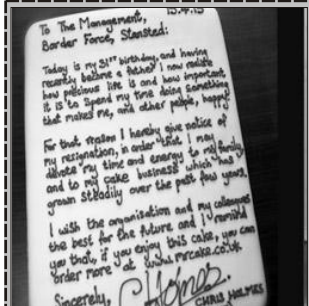 15.4.13
To The Management,
Border Force, Stansted:
Today is my 31st birthday, and having
recently become a father I now realise
how precious life is and how important
it is to spend my time doing something
that makes me, and other people, happy.
For that reason I hereby give notice of
my resignation, in order that I may
devote my time and energy to my family,
and to my cake business which has
grown steadily over the past few years.
I wish the organisation and my colleagues
the best for the future and I remind
you that, if you enjoy this cake, you can
order more at www.mrcake.co.uk.
Sincerely, C Holmes
CHRIS HOLMES